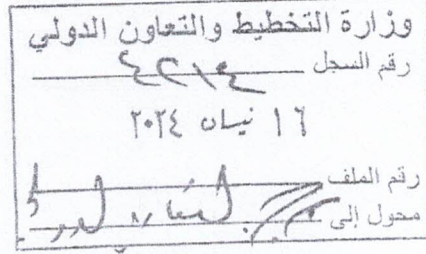 وزارة التخطيط والتعاون الدولي
رقم السجل
١٦ نيسان ٢٠٢٤
رقم الملف
محول إلى